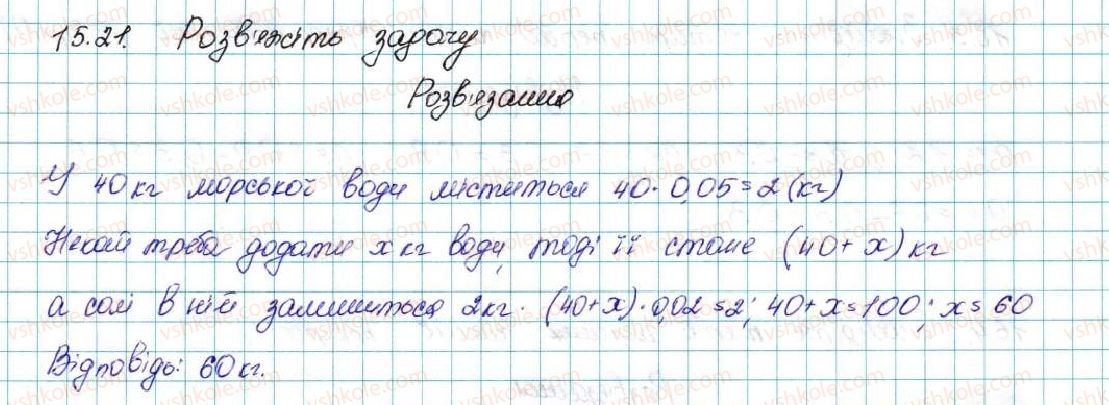 15.21. Розв'яжіть задачу
Розв'язання
У 40 кг морської води міститься 40 · 0,05 = 2 (кг)
Нехай треба додати x кг води, тоді її стане (40 + x) кг
а солі в ній залишиться 2 кг. (40 + x) · 0,02 = 2; 40 + x = 100; x = 60
Відповідь: 60 кг.